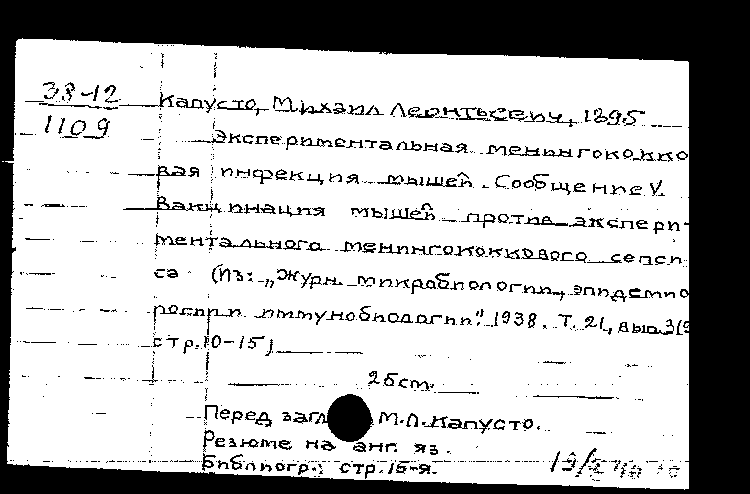 38-12
1109
Капусто, Михаил Леонтьевич, 1895
Экспериментальная менингококко
вая инфекция мышей. Сообщение V.
Вакцинация мышей против экспери-
ментального менингококкового сепси
са (Из: „Журн. микробиологии, эпидемио
логии и иммунобиологии". 1938. Т. 21, вып. 3(9
стр. 10-15)
25ст.
Перед загл М.Л. Капусто.
Резюме на анг. яз.
Библиогр.: стр. 15-я.